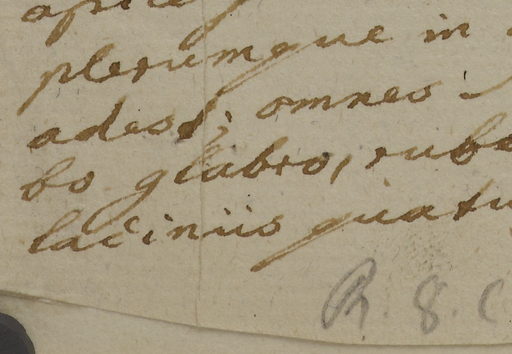 plerumque in
adest; omnes
bo glabro, rube
laciniis quatu
R. 8. C